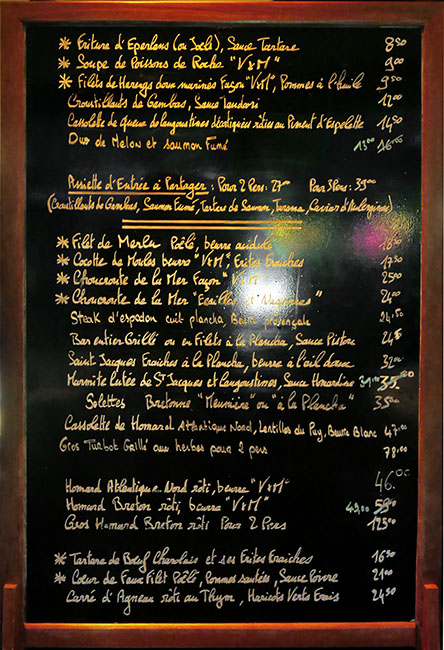 * Friture d'Eperlans (ou Joël), Sauce Tartare 8⁵⁰
* Soupe de Poissons de Roche "V&M" 9⁰⁰
* Filets de Harengs doux marinés Façon "V&M", Pommes à l'huile 9⁵⁰
Croustillants de Gambas, Sauce Tandoori 12⁰⁰
Cassolette de queue de langoustines décortiquées rôties au Piment d'Espelette 14⁵⁰
Duo de Melon et saumon Fumé 13⁰⁰ 16⁰⁰
Assiette d'Entrée à Partager : Pour 2 Pers : 27⁰⁰ Pour 3 Pers : 39⁰⁰
(Croustillants de Gambas, Saumon Fumé, Tartare de Saumon, Tarama, Caviar d'Aubergine)
* Filet de Merlu Poêlé, beurre acidulé
* Cocotte de Moules beurre "V&M", Frites Fraîches 17⁵⁰
* Choucroute de la Mer Façon "V&M" 25⁰⁰
* Choucroute de la Mer "Ecailles et Nageoires" 24⁰⁰
Steak d'espadon cuit plancha, Beurre provençale 24.⁵⁰
Bar entier Grillé ou en Filets à la Plancha, Sauce Pistou 24⁵⁰
Saint Jacques Fraîches à la Plancha, beurre à l'ail doux 32⁰⁰
Marmite lutée de St Jacques et langoustines, Sauce Homardine 39.⁰⁰ 35.⁰⁰
Solettes Bretonne "Meunière" ou "à la Plancha" 35⁰⁰
Cassolette de Homard Atlantique Nord, Lentilles du Puy, Beurre Blanc 47.⁰⁰
Gros Turbot Grillé aux herbes pour 2 pers 78.⁰⁰
Homard Atlantique Nord rôti, beurre "V&M" 46.⁰⁰
Homard Breton rôti, beurre "V&M" 49,00 58⁰⁰
Gros Homard Breton rôti Pour 2 Pers 125⁰⁰
* Tartare de Bœuf Charolais et ses Frites Fraîches 16⁵⁰
* Cœur de Faux Filet Poêlé, Pommes sautées, Sauce Poivre 21⁰⁰
Carré d'Agneau rôti au Thym, Haricots Verts Frais 24⁵⁰